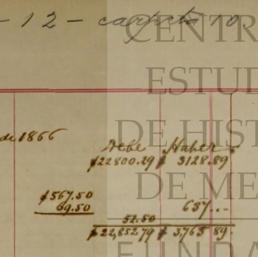 -12- carpeta 10
CENTR
ESTUI
de 1866
DE HIST
Debe Haber
$22800.29 $ 3128.89
DE ME
$567.50
69.50 637..-
52.50
$22,852.79 $3,765 89.
FUNDA